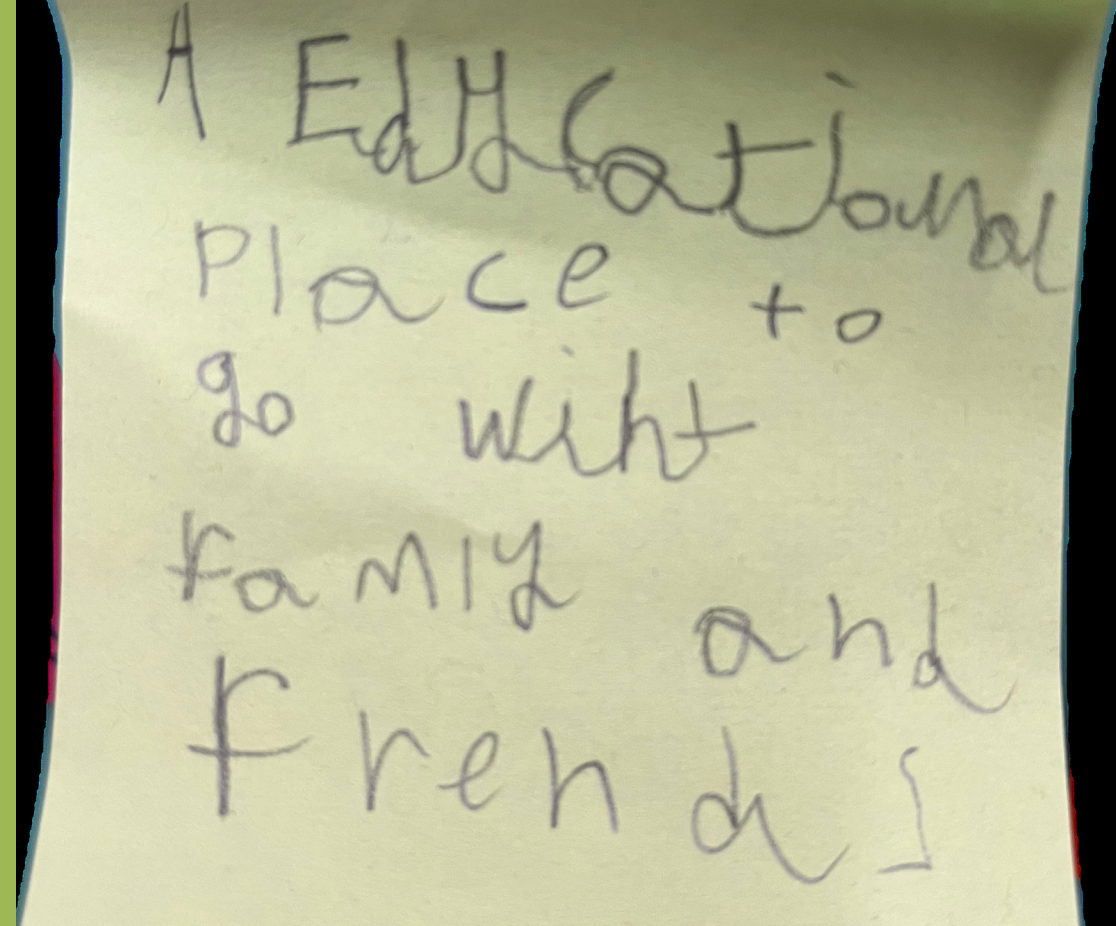 A Edycational
Place to
go wiht
famly and
frends